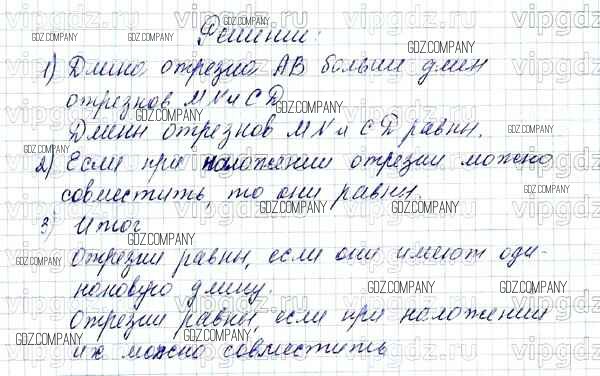 Решении:
1) Длина отрезка АВ больши длин
отрезков MN и CD
Длины отрезков MN и CD равны.
2) Если при наложении отрезки можно
совместить, то они равны.
3) Итог
Отрезки равны, если они имеют оди-
наковую длину.
Отрезки равны, если при наложении
их можно совместить
GDZ.COMPANY
vipgdz.ru